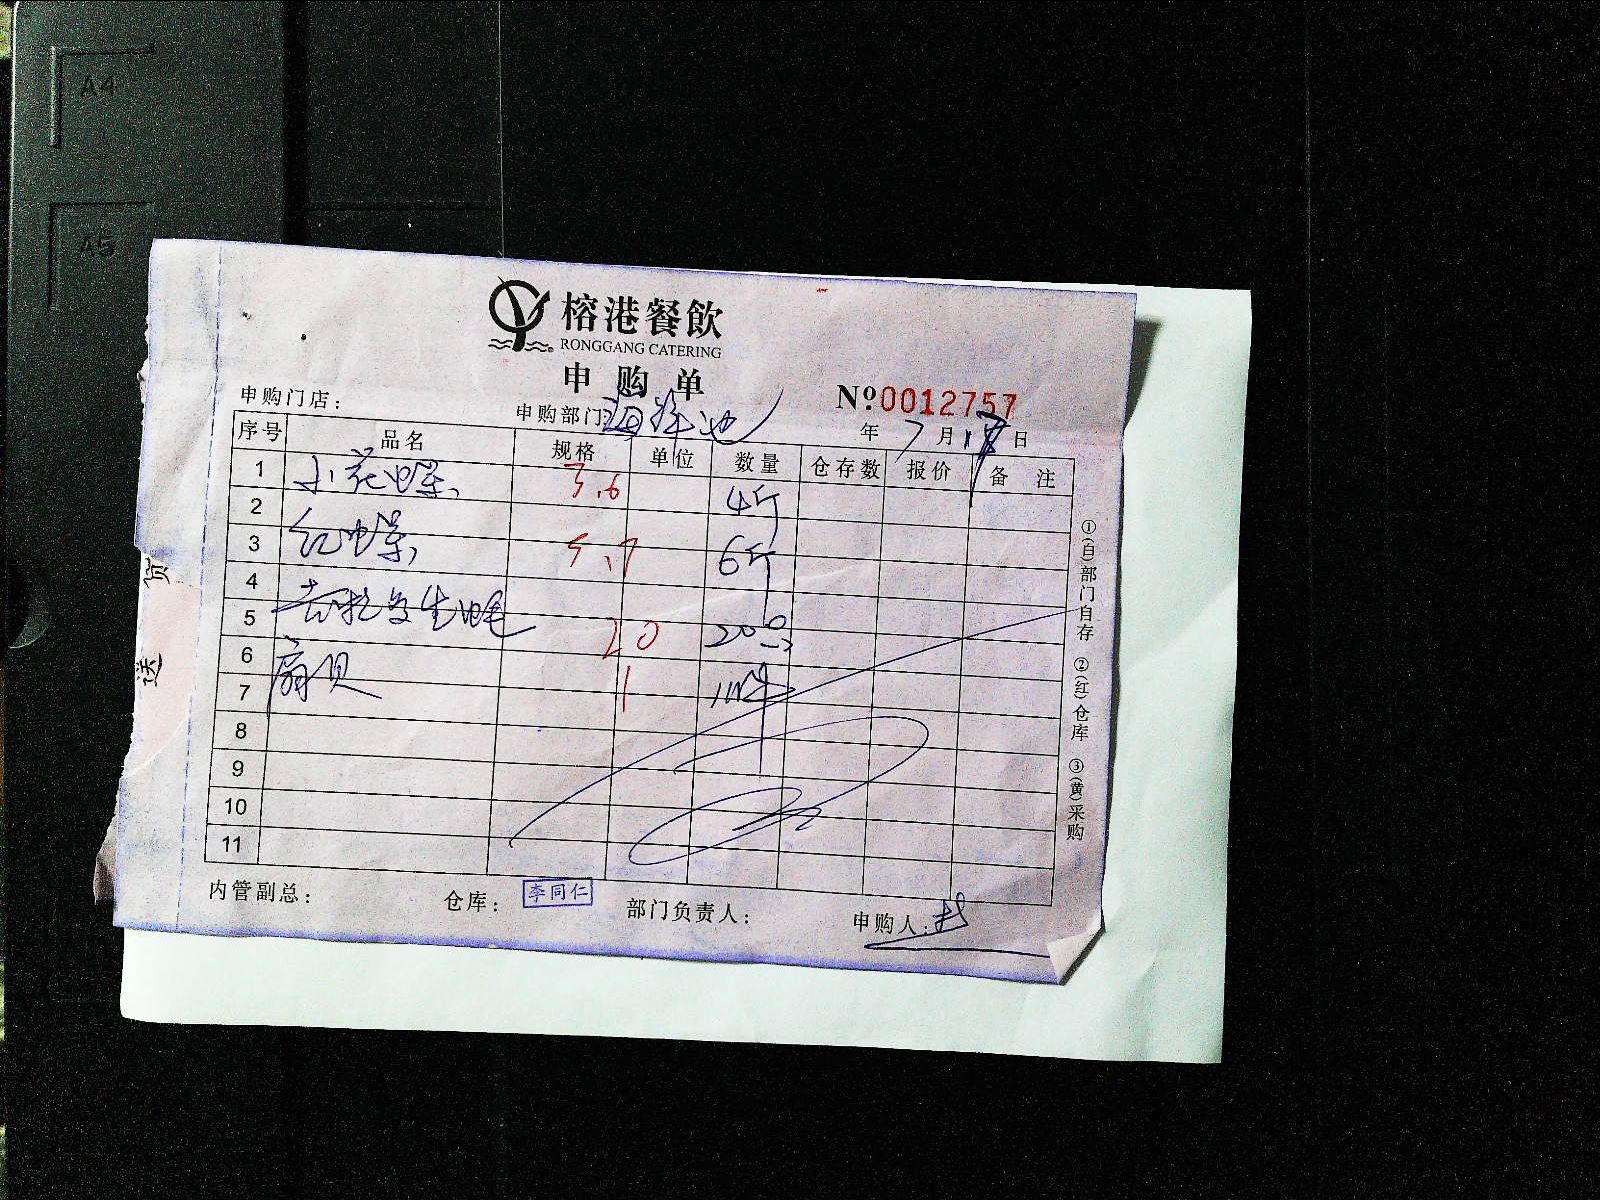 A4
A5
榕港餐飲
RONGGANG CATERING
申购单
申购门店：
申购部门：海鲜池
№0012757
年 7月 日
序号 品名 规格 单位 数量 仓存数 报价 备 注
1 小花螺 3.6 4斤
2
3 红螺 5.7 6斤
4
5 生蚝 20 20只
6
7 扇贝 1 1件
8
9
10
11
①(白)部门自存 ②(红)仓库 ③(黄)采购
送 货
内管副总： 仓库： 李同仁 部门负责人： 申购人：